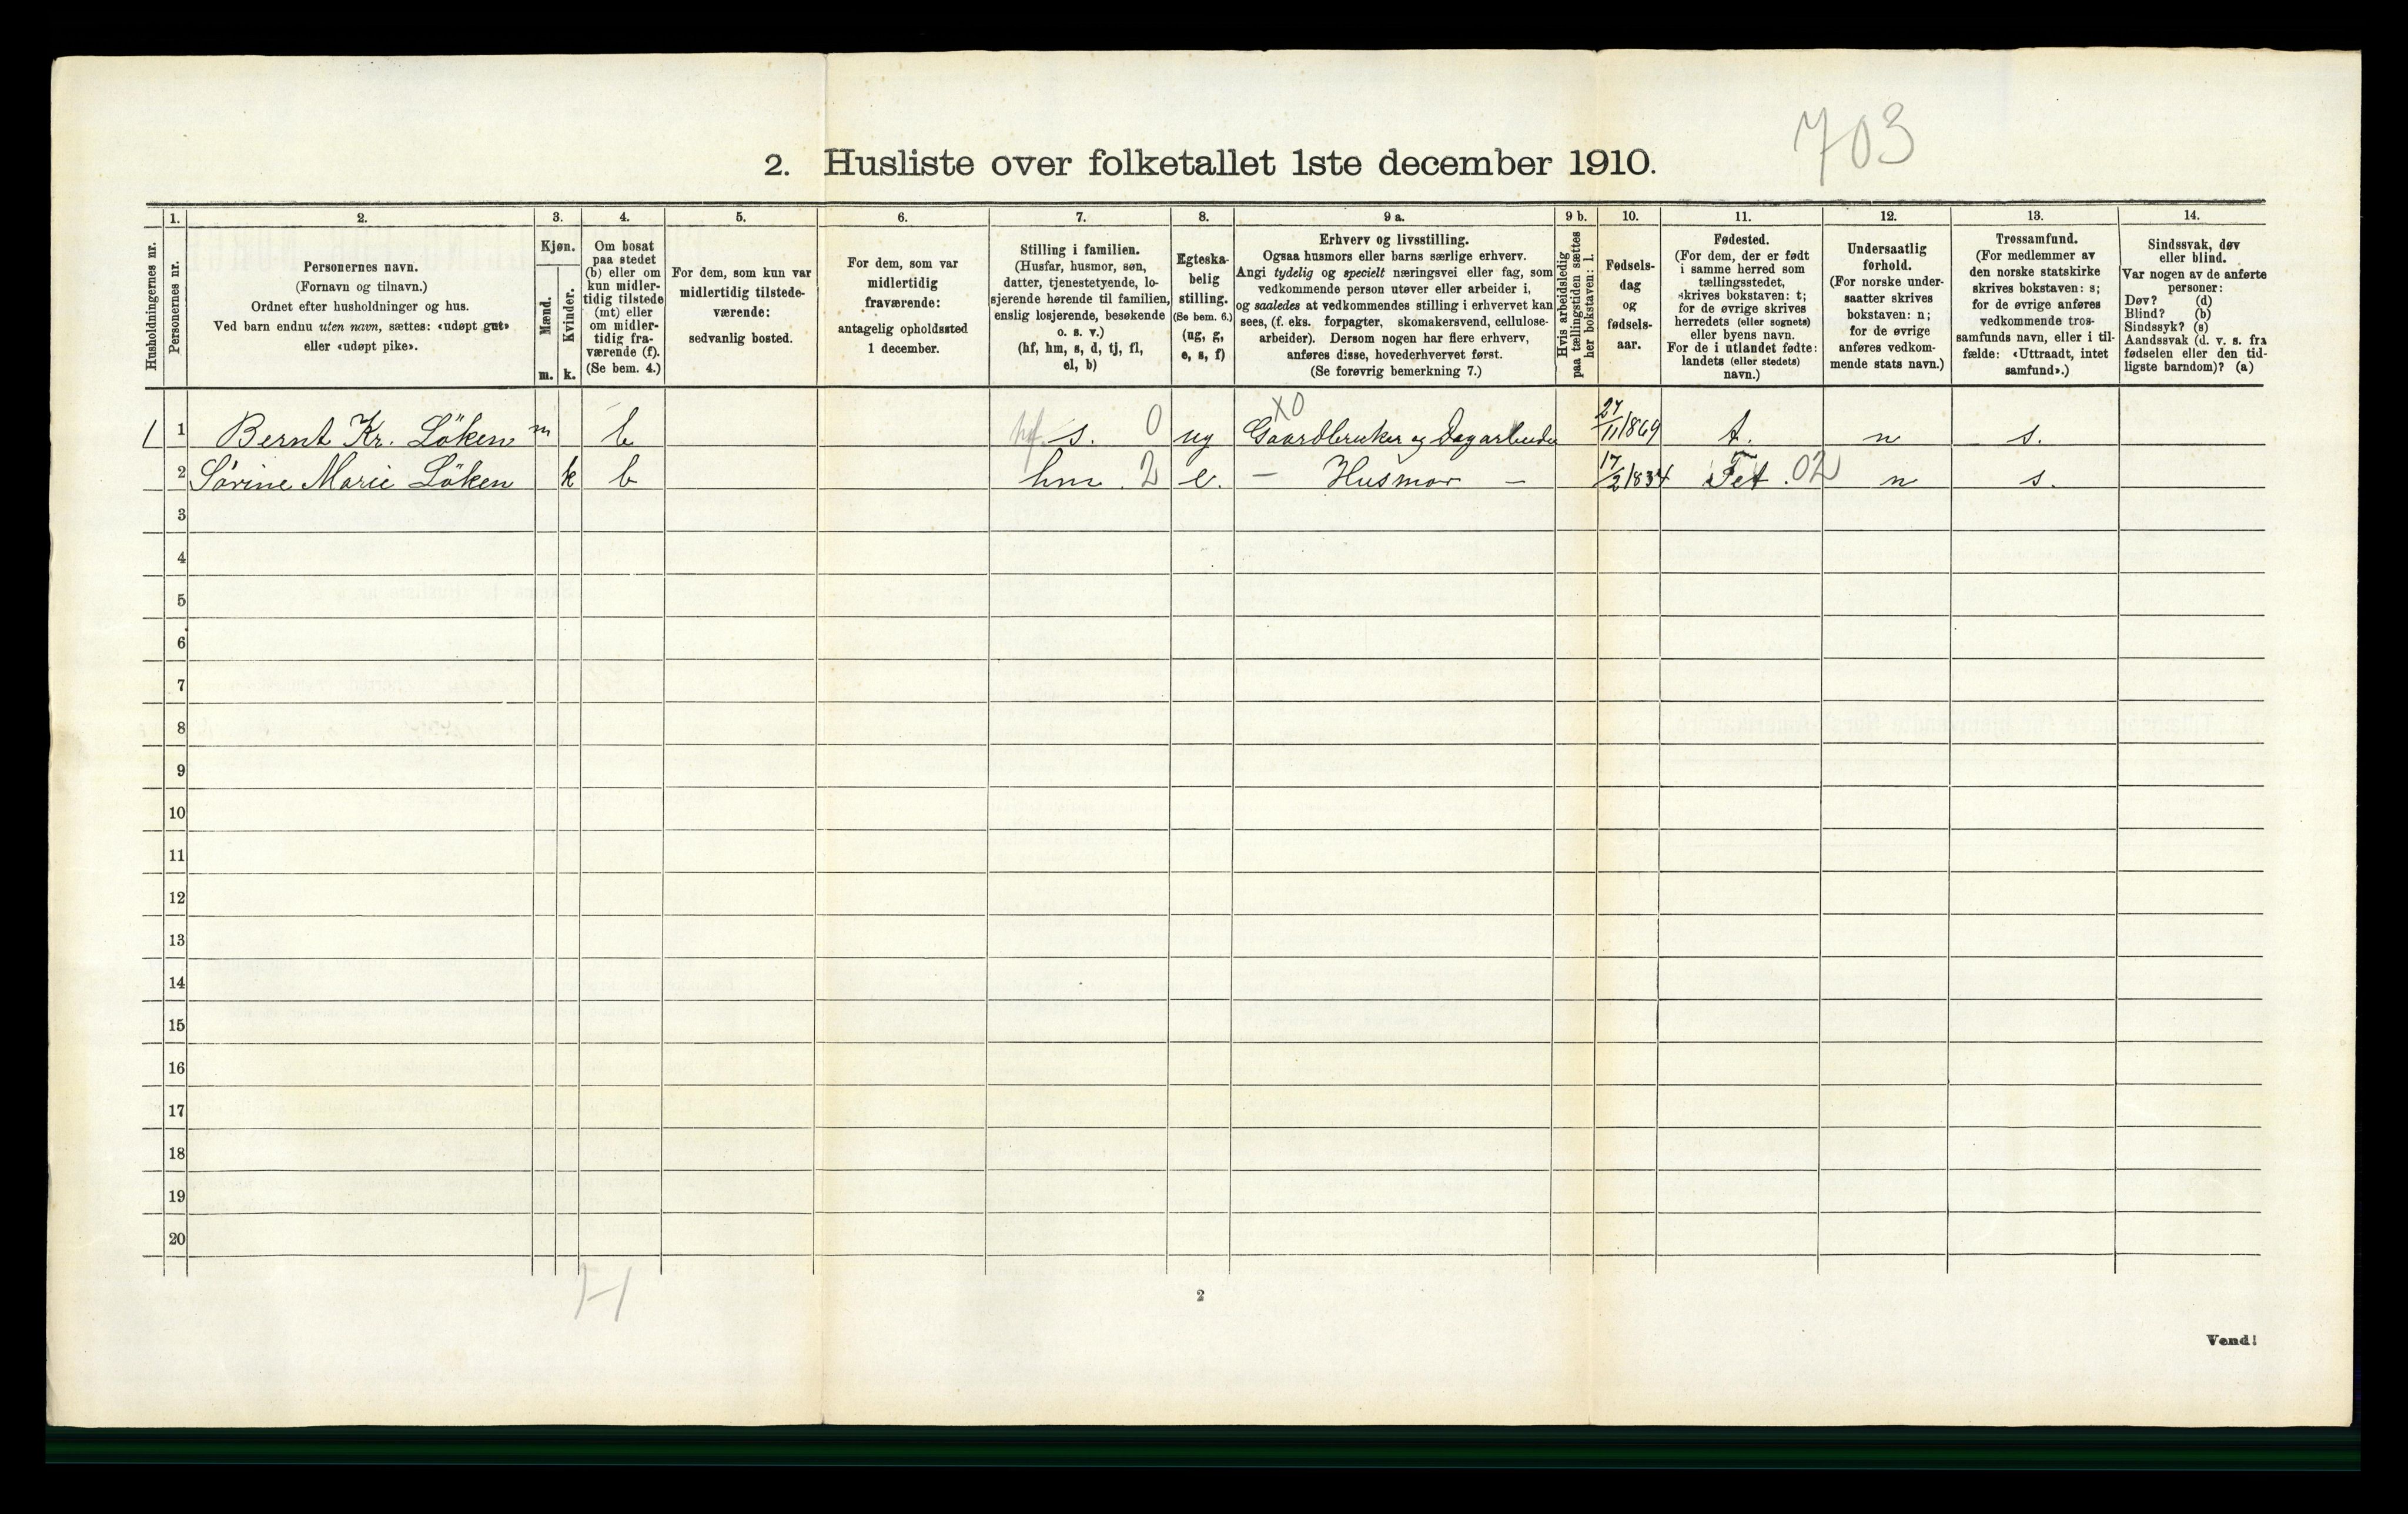 703
2. Husliste over folketallet 1ste december 1910.
Husholdningernes nr.
1.
Personernes nr.
2.
Personernes navn.
(Fornavn og tilnavn.)
Ordnet efter husholdninger og hus.
Ved barn endnu uten navn, sættes: «udøpt gut»
eller «udøpt pike».
3.
Kjøn.
Mænd.
Kvinder.
m. k.
4.
Om bosat
paa stedet
(b) eller om
kun midler-
tidig tilstede
(mt) eller
om midler-
tidig fra-
værende (f).
(Se bem. 4.)
5.
For dem, som kun var
midlertidig tilstede-
værende:
sedvanlig bosted.
6.
For dem, som var
midlertidig
fraværende:
antagelig opholdssted
1 december.
7.
Stilling i familien.
(Husfar, husmor, søn,
datter, tjenestetyende, lo-
sjerende hørende til familien,
enslig losjerende, besøkende
o. s. v.)
(hf, hm, s, d, tj, fl,
el, b)
8.
Egteska-
belig
stilling.
(Se bem. 6.)
(ug, g,
e, s, f)
9 a.
Erhverv og livsstilling.
Ogsaa husmors eller barns særlige erhverv.
Angi tydelig og specielt næringsvei eller fag, som
vedkommende person utøver eller arbeider i,
og saaledes at vedkommendes stilling i erhvervet kan
sees, (f. eks. forpagter, skomakersvend, cellulose-
arbeider). Dersom nogen har flere erhverv,
anføres disse, hovederhvervet først.
(Se forøvrig bemerkning 7.)
9 b.
Hvis arbeidsledig
paa tællingstiden sættes
her bokstaven: l.
10.
Fødsels-
dag
og
fødsels-
aar.
11.
Fødested.
(For dem, der er født
i samme herred som
tællingsstedet,
skrives bokstaven: t;
for de øvrige skrives
herredets (eller sognets)
eller byens navn.
For de i utlandet fødte:
landets (eller stedets)
navn.)
12.
Undersaatlig
forhold.
(For norske under-
saatter skrives
bokstaven: n;
for de øvrige
anføres vedkom-
mende stats navn.)
13.
Trossamfund.
(For medlemmer av
den norske statskirke
skrives bokstaven: s;
for de øvrige anføres
vedkommende tros-
samfunds navn, eller i til-
fælde: «Uttraadt, intet
samfund».)
14.
Sindssvak, døv
eller blind.
Var nogen av de anførte
personer:
Døv? (d)
Blind? (b)
Sindssyk? (s)
Aandssvak (d. v. s. fra
fødselen eller den tid-
ligste barndom)? (a)
1 1 Bernt Kr. Löken m b hf. s. 0 ug X0 Gaardbruker og Dagarbeider 27/11 1869 t. n s.
2 Sörine Marie Löken k b hm. 2 e. — Husmor — 17/2 1834 Fet. 02 n s.
3
4
5
6
7
8
9
10
11
12
13
14
15
16
17
18
19
20
2
Vend!